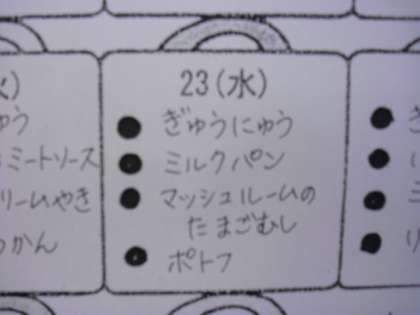 23(水)
ぎゅうにゅう
ミルクパン
マッシュルームの
たまごむし
ポトフ
ミートソース
リームやき
かん